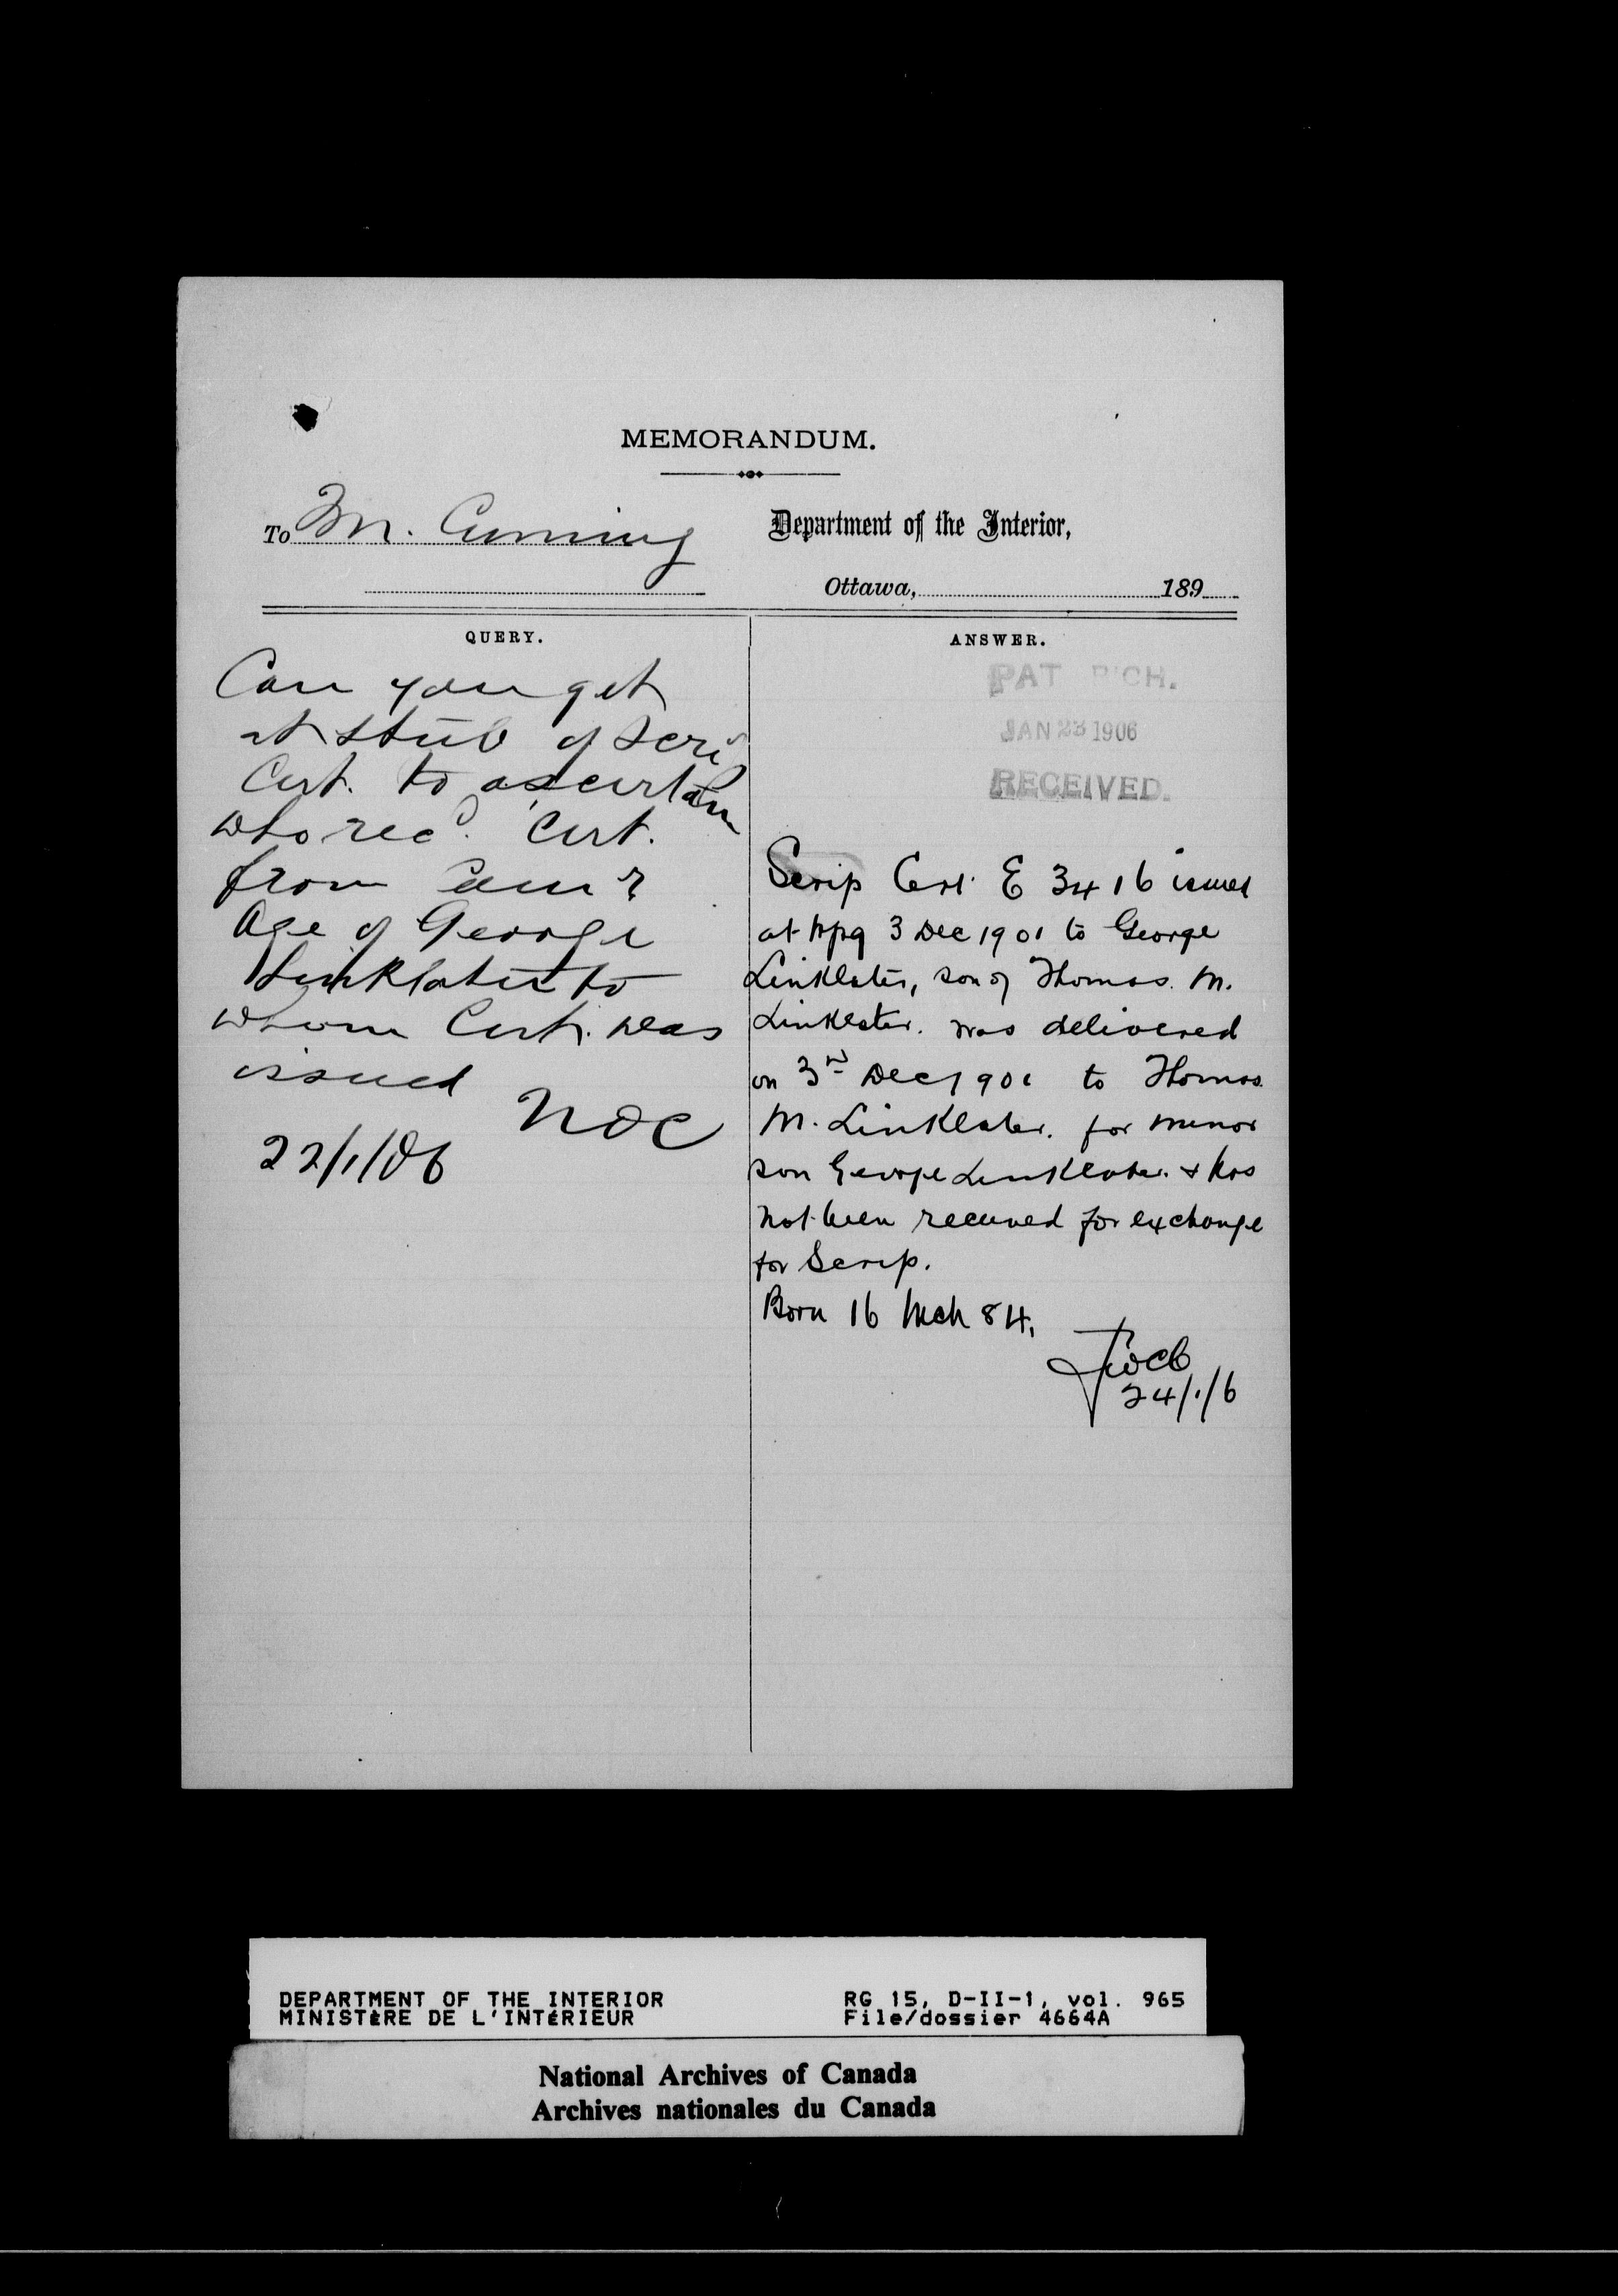 MEMORANDUM.
To M. Cuming
Department of the Interior,
Ottawa, 189
QUERY.
Can you get
at stub of Scrip
Cert. to ascertain
who recd. Cert.
from Com'r
Age of George
Linklater to
whom Cert. was
issued
NOC
22/1/06
ANSWER.
PAT B'CH.
JAN 23 1906
RECEIVED.
Scrip Cert. E 3416 issued
at Wpg 3 Dec 1901 to George
Linklater, son of Thomas. M.
Linklater. was delivered
on 3rd Dec 1901 to Thomas
M. Linklater. for minor
son George Linklater. & has
not been received for exchange
for Scrip.
Born 16 Mch 84.
24/1/6
DEPARTMENT OF THE INTERIOR
MINISTÈRE DE L'INTÉRIEUR
RG 15, D-II-1, vol. 965
File/dossier 4664A
National Archives of Canada
Archives nationales du Canada